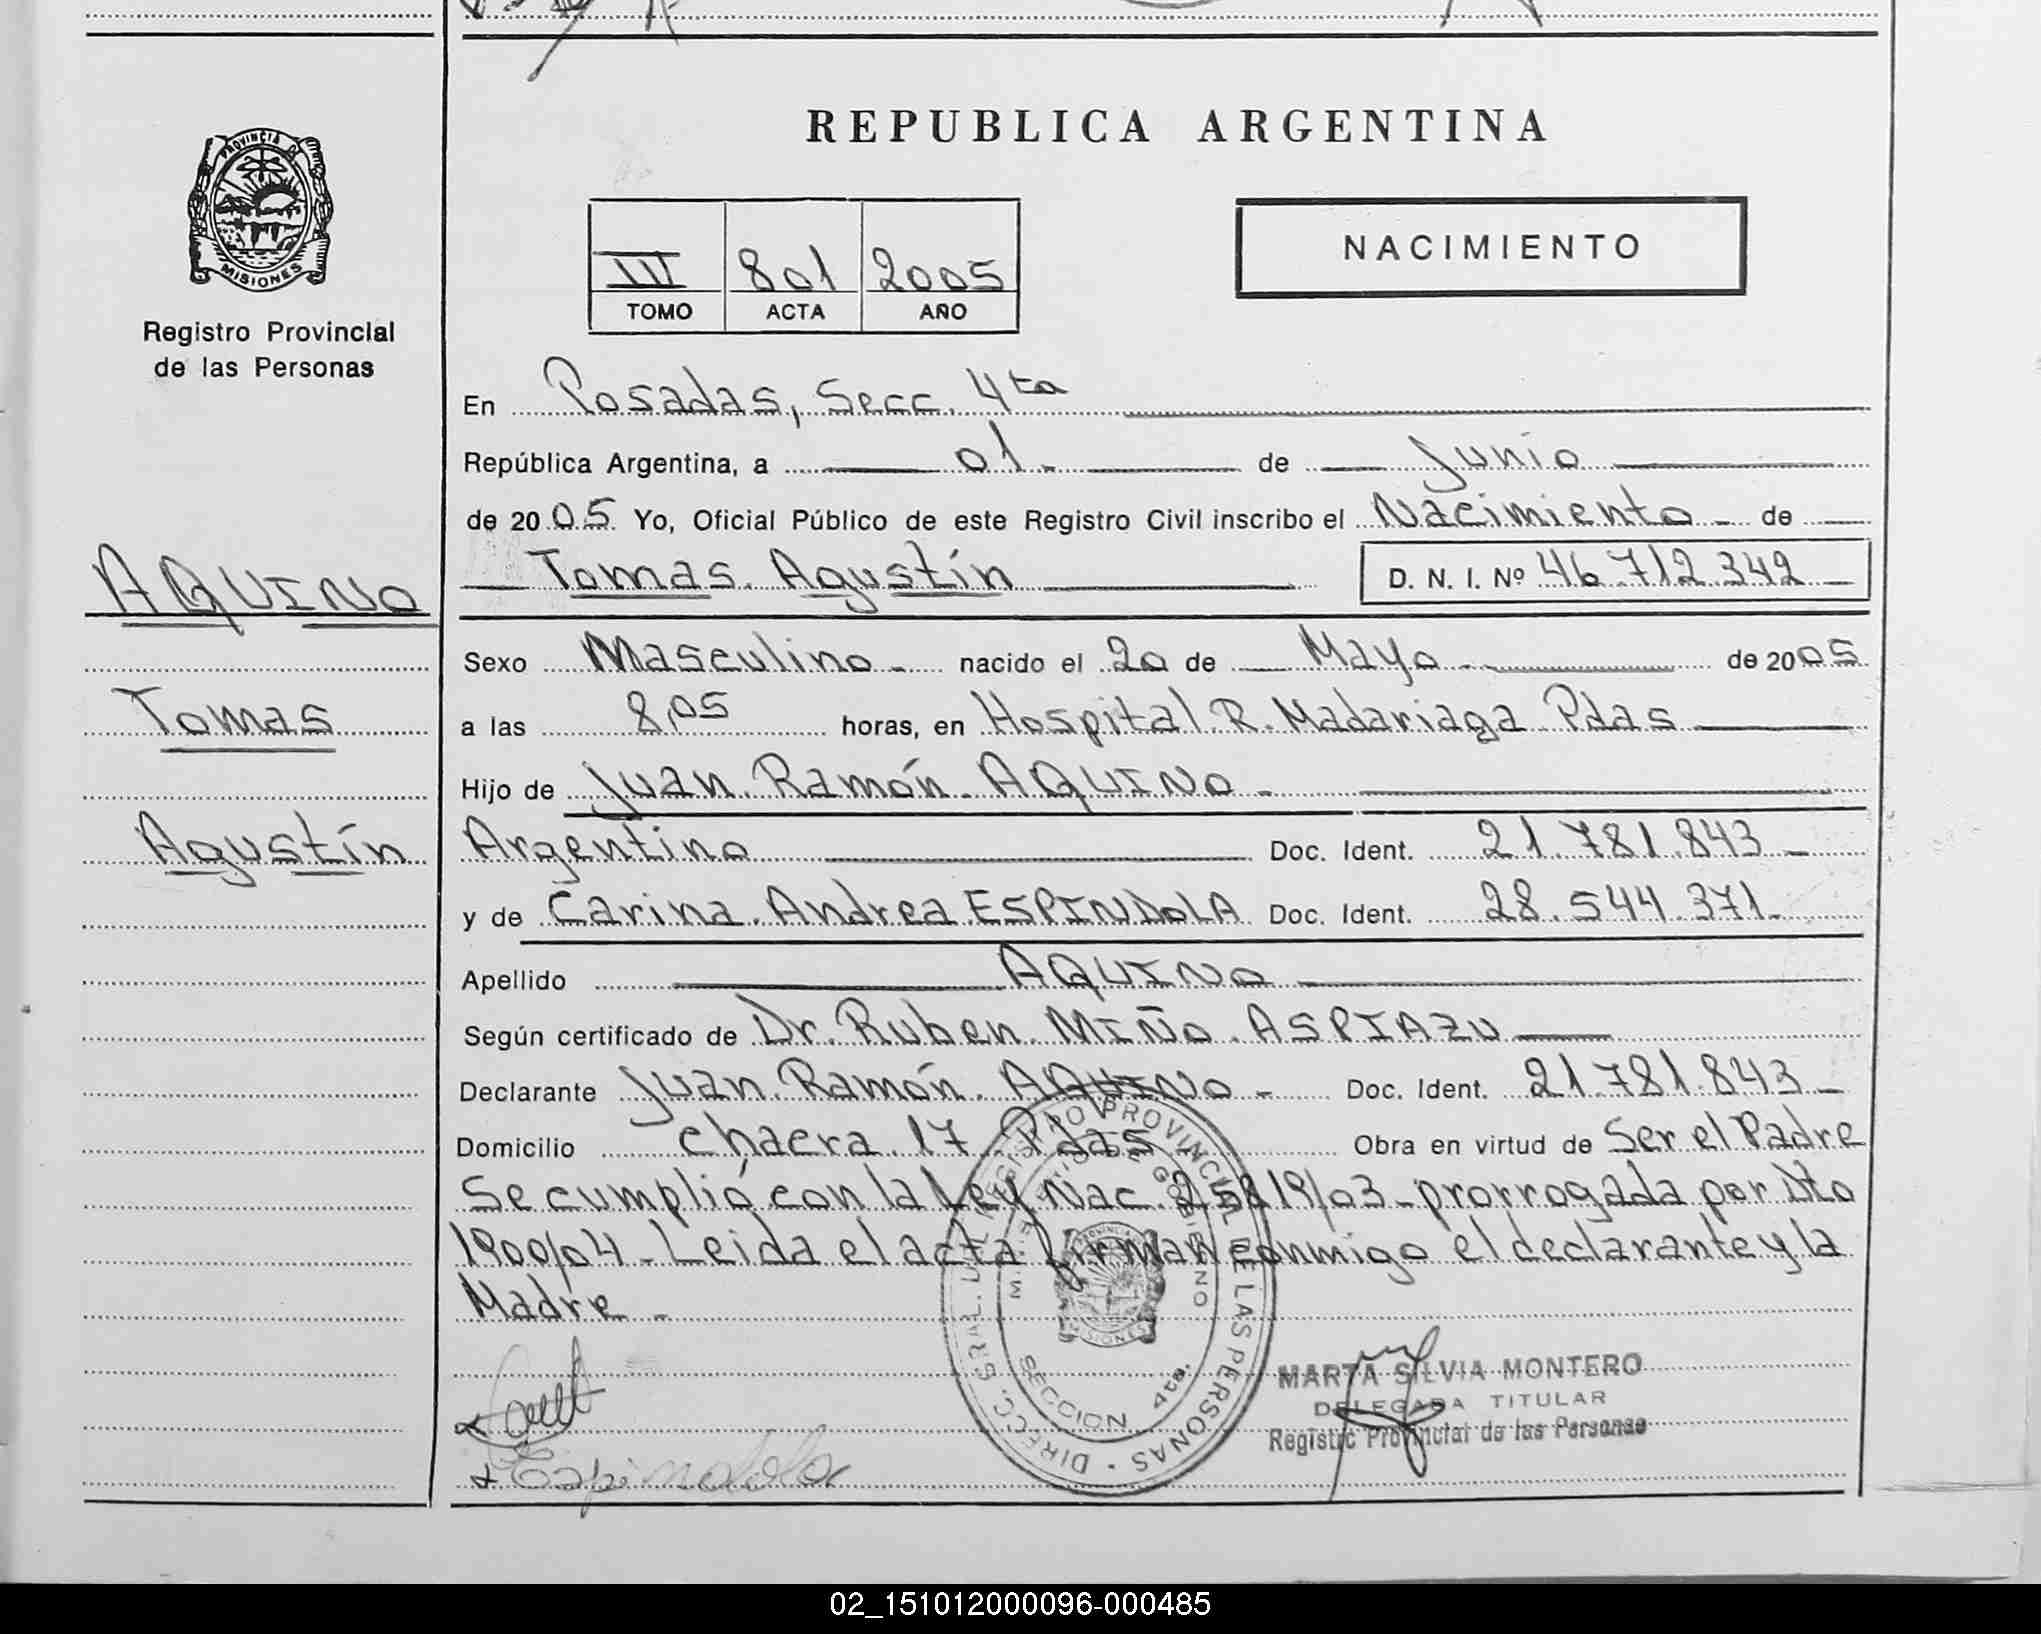 PROVINCIA D
MISIONES
Registro Provincial
de las Personas
AQUINO
Tomas
Agustín
REPUBLICA ARGENTINA
III 801 2005
TOMO ACTA AÑO
NACIMIENTO
En Posadas, Secc. 4ta
República Argentina, a 01 de Junio
de 2005 Yo, Oficial Público de este Registro Civil inscribo el Nacimiento de
Tomas Agustín D. N. I. Nº 46.712.342
Sexo Masculino nacido el 20 de Mayo de 2005
a las 8,05 horas, en Hospital R. Madariaga Pdas
Hijo de Juan Ramón AQUINO
Argentino Doc. Ident. 21.781.843
y de Carina Andrea ESPINDOLA Doc. Ident. 28.544.371
Apellido AQUINO
Según certificado de Dr. Ruben MIÑO ASPIAZU
Declarante Juan Ramón AQUINO Doc. Ident. 21.781.843
Domicilio chacra 17 Pdas Obra en virtud de Ser el Padre
Se cumplió con la Ley Nac. 25819/03 - prorrogada por Dto
1900/04 - Leida el acta firman conmigo el declarante y la
Madre
DIRECC. GRAL. DEL REGISTRO PROVINCIAL DE LAS PERSONAS
MINISTERIO DE GOBIERNO
MISIONES
SECCION 4ta.
MARTA SILVIA MONTERO
DELEGADA TITULAR
Registro Provincial de las Personas
Espindola
02_151012000096-000485